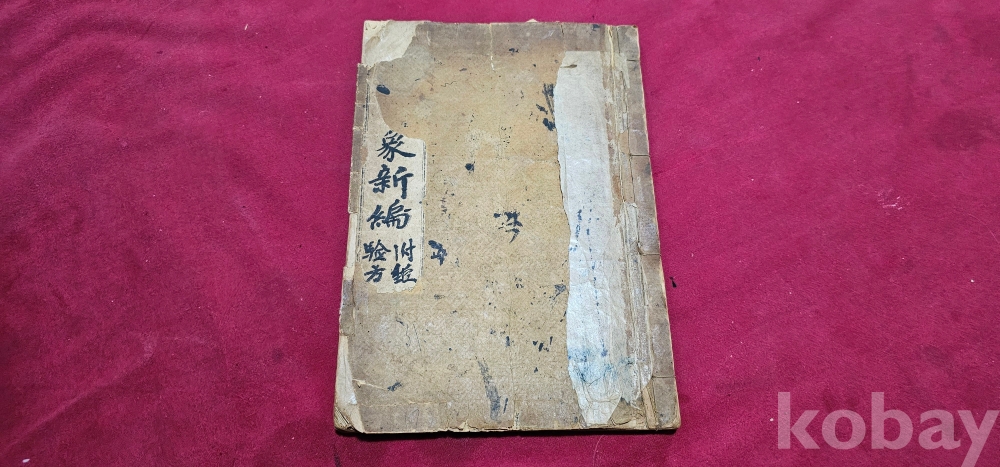 象新編
附經
驗方
kobay